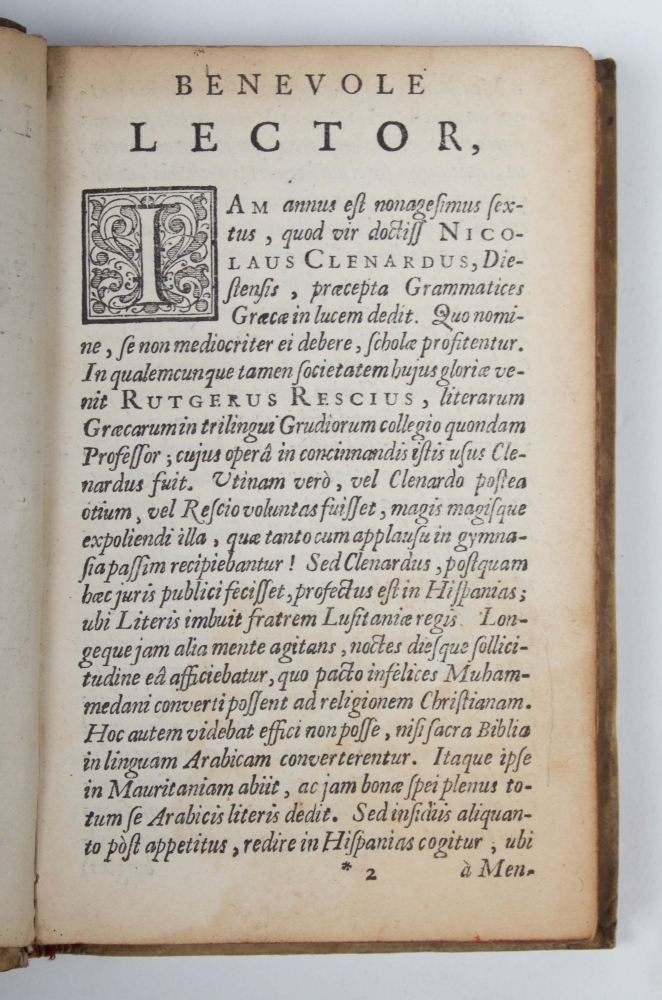 BENEVOLE
LECTOR,
IAM annus est nonagesimus sex-
tus, quod vir doctiss NICO-
LAUS CLENARDUS, Die-
stensis, præcepta Grammatices
Græcæ in lucem dedit. Quo nomi-
ne, se non mediocriter ei debere, scholæ profitentur.
In qualemcunque tamen societatem hujus gloriæ ve-
nit RUTGERUS RESCIUS, literarum
Græcarum in trilingui Grudiorum collegio quondam
Professor; cujus operâ in concinnandis istis usus Cle-
nardus fuit. Vtinam verò, vel Clenardo postea
otium, vel Rescio voluntas fuisset, magis magisque
expoliendi illa, quæ tanto cum applausu in gymna-
sia passim recipiebantur! Sed Clenardus, postquam
hæc juris publici fecisset, profectus est in Hispanias;
ubi Literis imbuit fratrem Lusitaniæ regis. Lon-
geque jam alia mente agitans, noctes diesque sollici-
tudine eâ afficiebatur, quo pacto infelices Muham-
medani converti possent ad religionem Christianam.
Hoc autem videbat effici non posse, nisi sacra Biblia
in linguam Arabicam converterentur. Itaque ipse
in Mauritaniam abiit, ac jam bonæ spei plenus to-
tum se Arabicis literis dedit. Sed insidiis aliquan-
to pòst appetitus, redire in Hispanias cogitur, ubi
* 2 à Men-